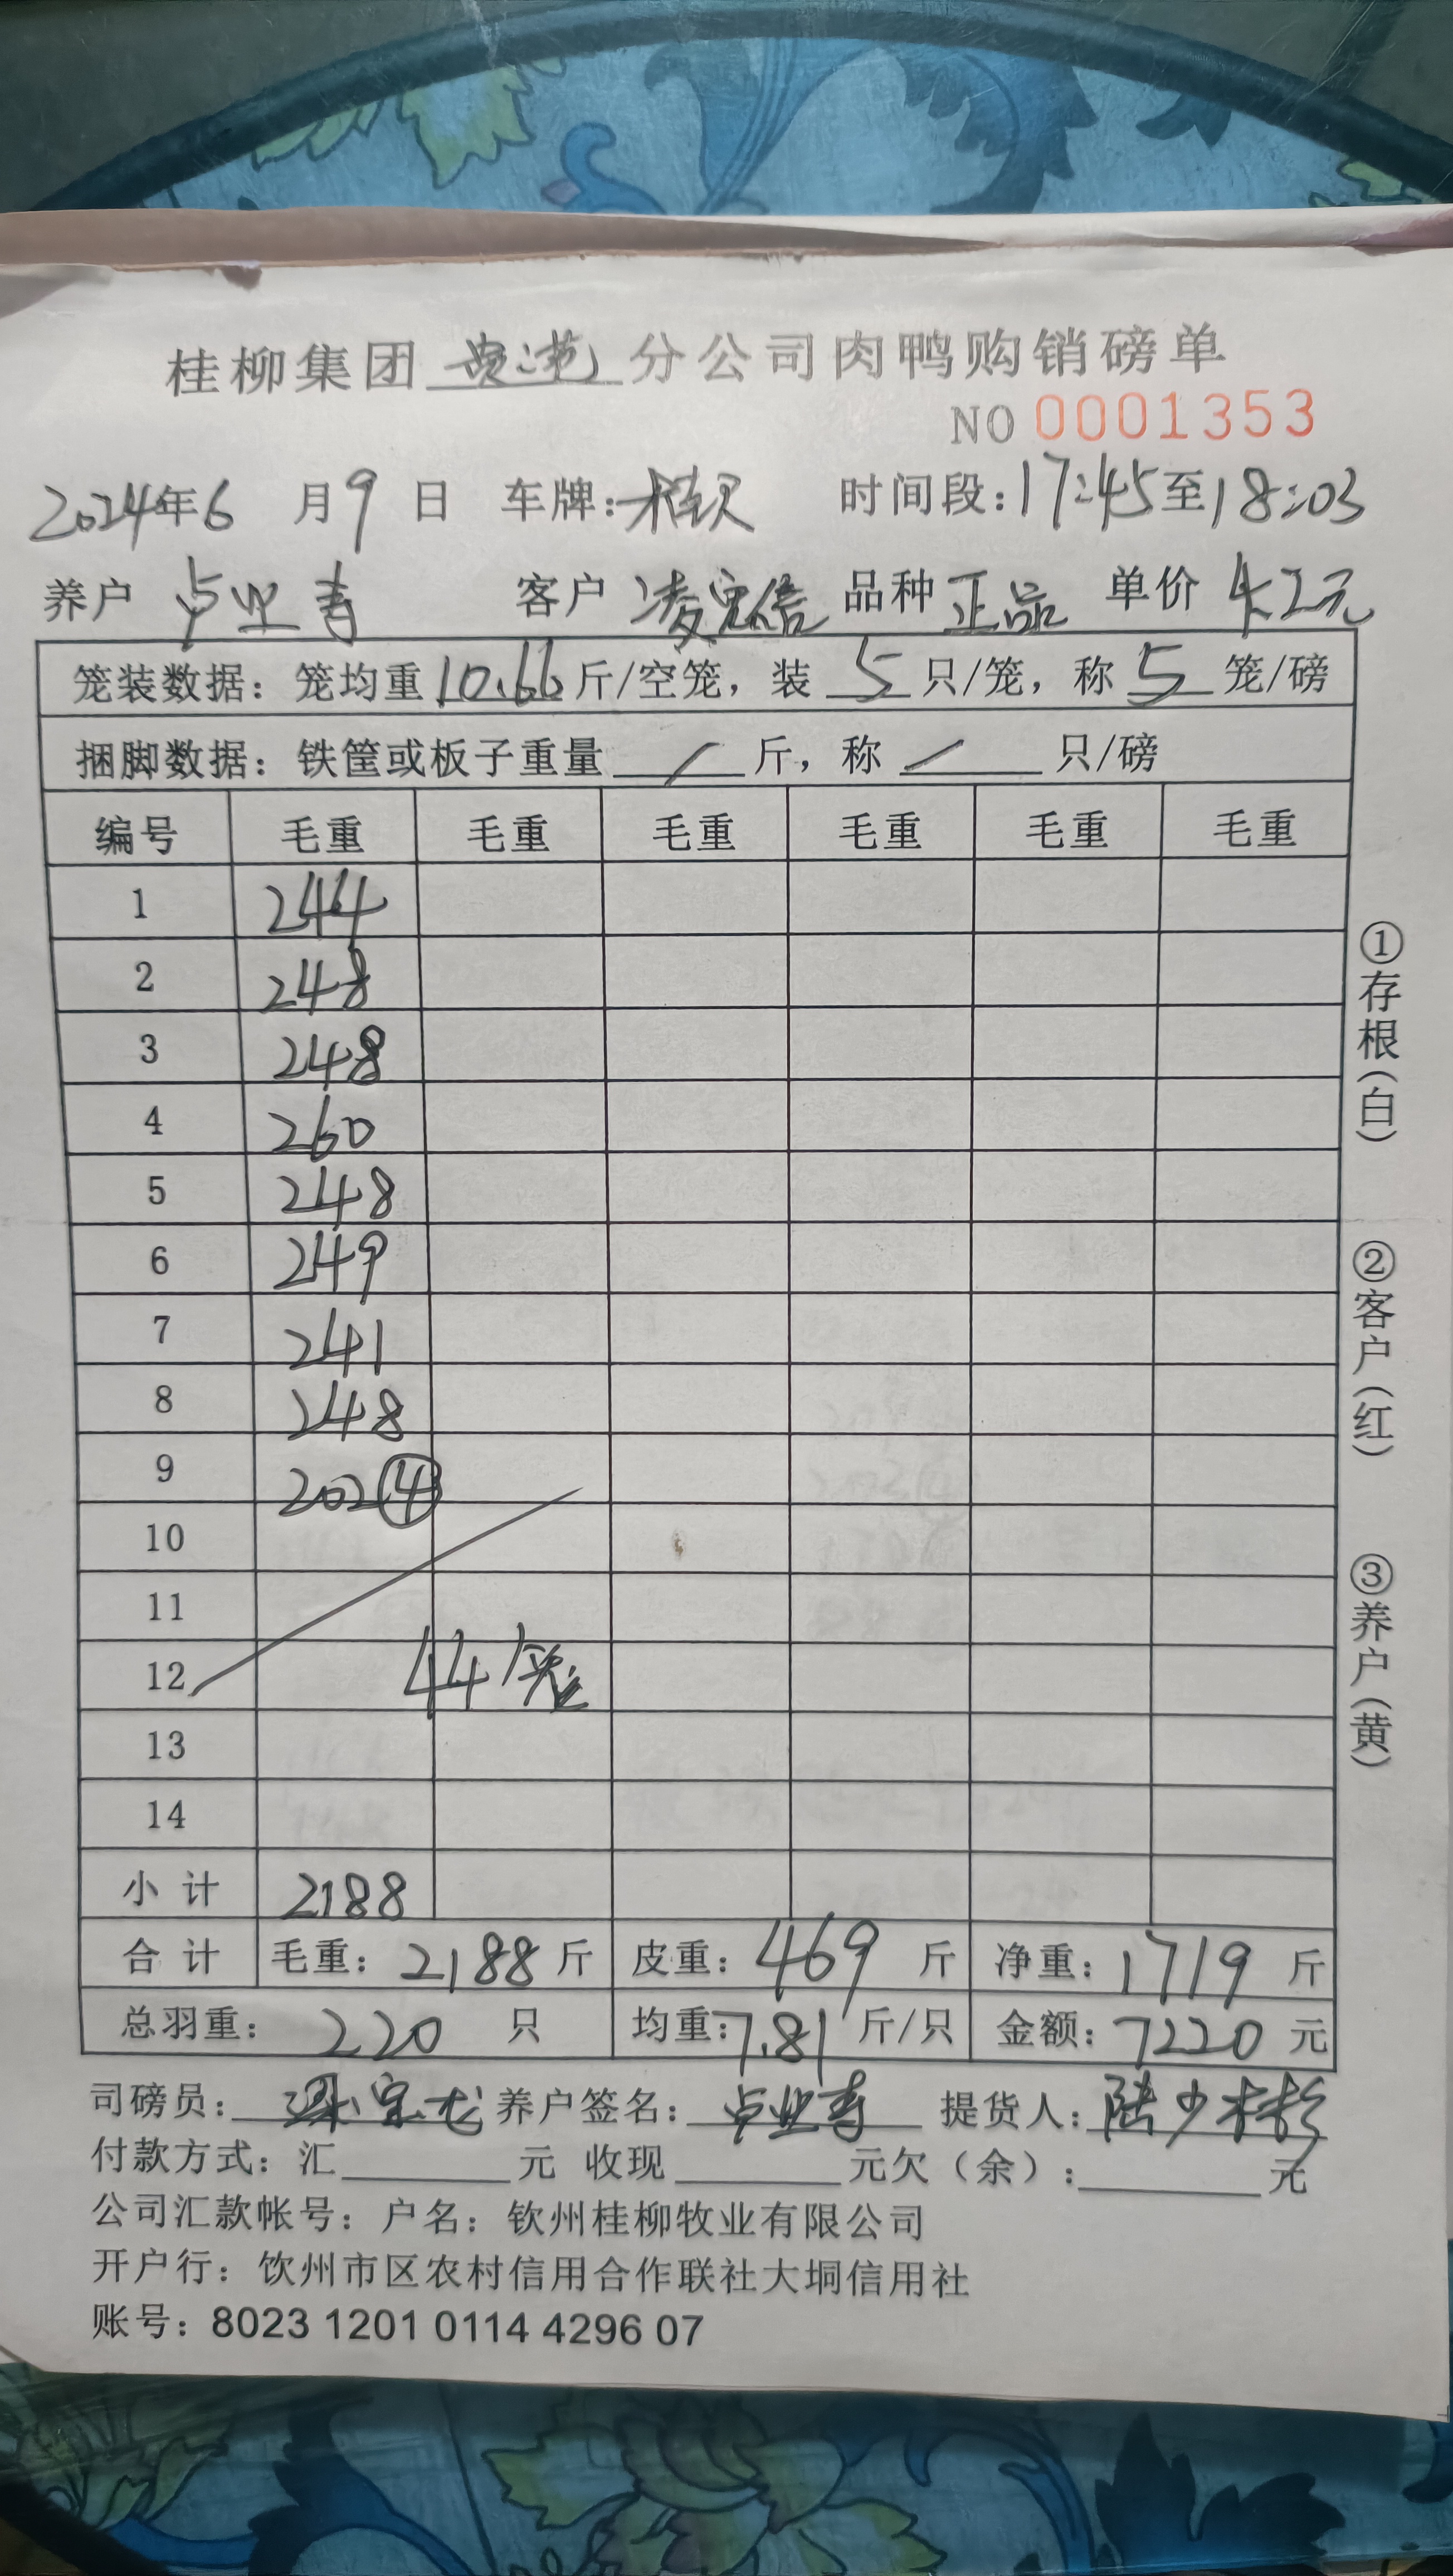 桂柳集团 贵港 分公司肉鸭购销磅单
NO 0001353
2024年6月9日 车牌: 时间段:17:45至18:03
养户 卢业寿 客户 凌 信 品种 正品 单价 4.2元
笼装数据: 笼均重10.66斤/空笼, 装 5 只/笼, 称 5 笼/磅
捆脚数据: 铁筐或板子重量 / 斤, 称 / 只/磅
编号 毛重 毛重 毛重 毛重 毛重 毛重
1 244
2 248
3 248
4 260
5 248
6 249
7 241
8 248
9 202④
10
11
12 44个笼
13
14
小计 2188
合计 毛重: 2188 斤 皮重: 469 斤 净重: 1719 斤
总羽重: 220 只 均重: 7.81 斤/只 金额: 7220 元
司磅员: 养户签名: 卢业寿 提货人: 陆少彬
付款方式: 汇 元 收现 元欠(余): 元
公司汇款帐号: 户名: 钦州桂柳牧业有限公司
开户行: 饮州市区农村信用合作联社大垌信用社
账号: 8023 1201 0114 4296 07
①存根(白)
②客户(红)
③养户(黄)